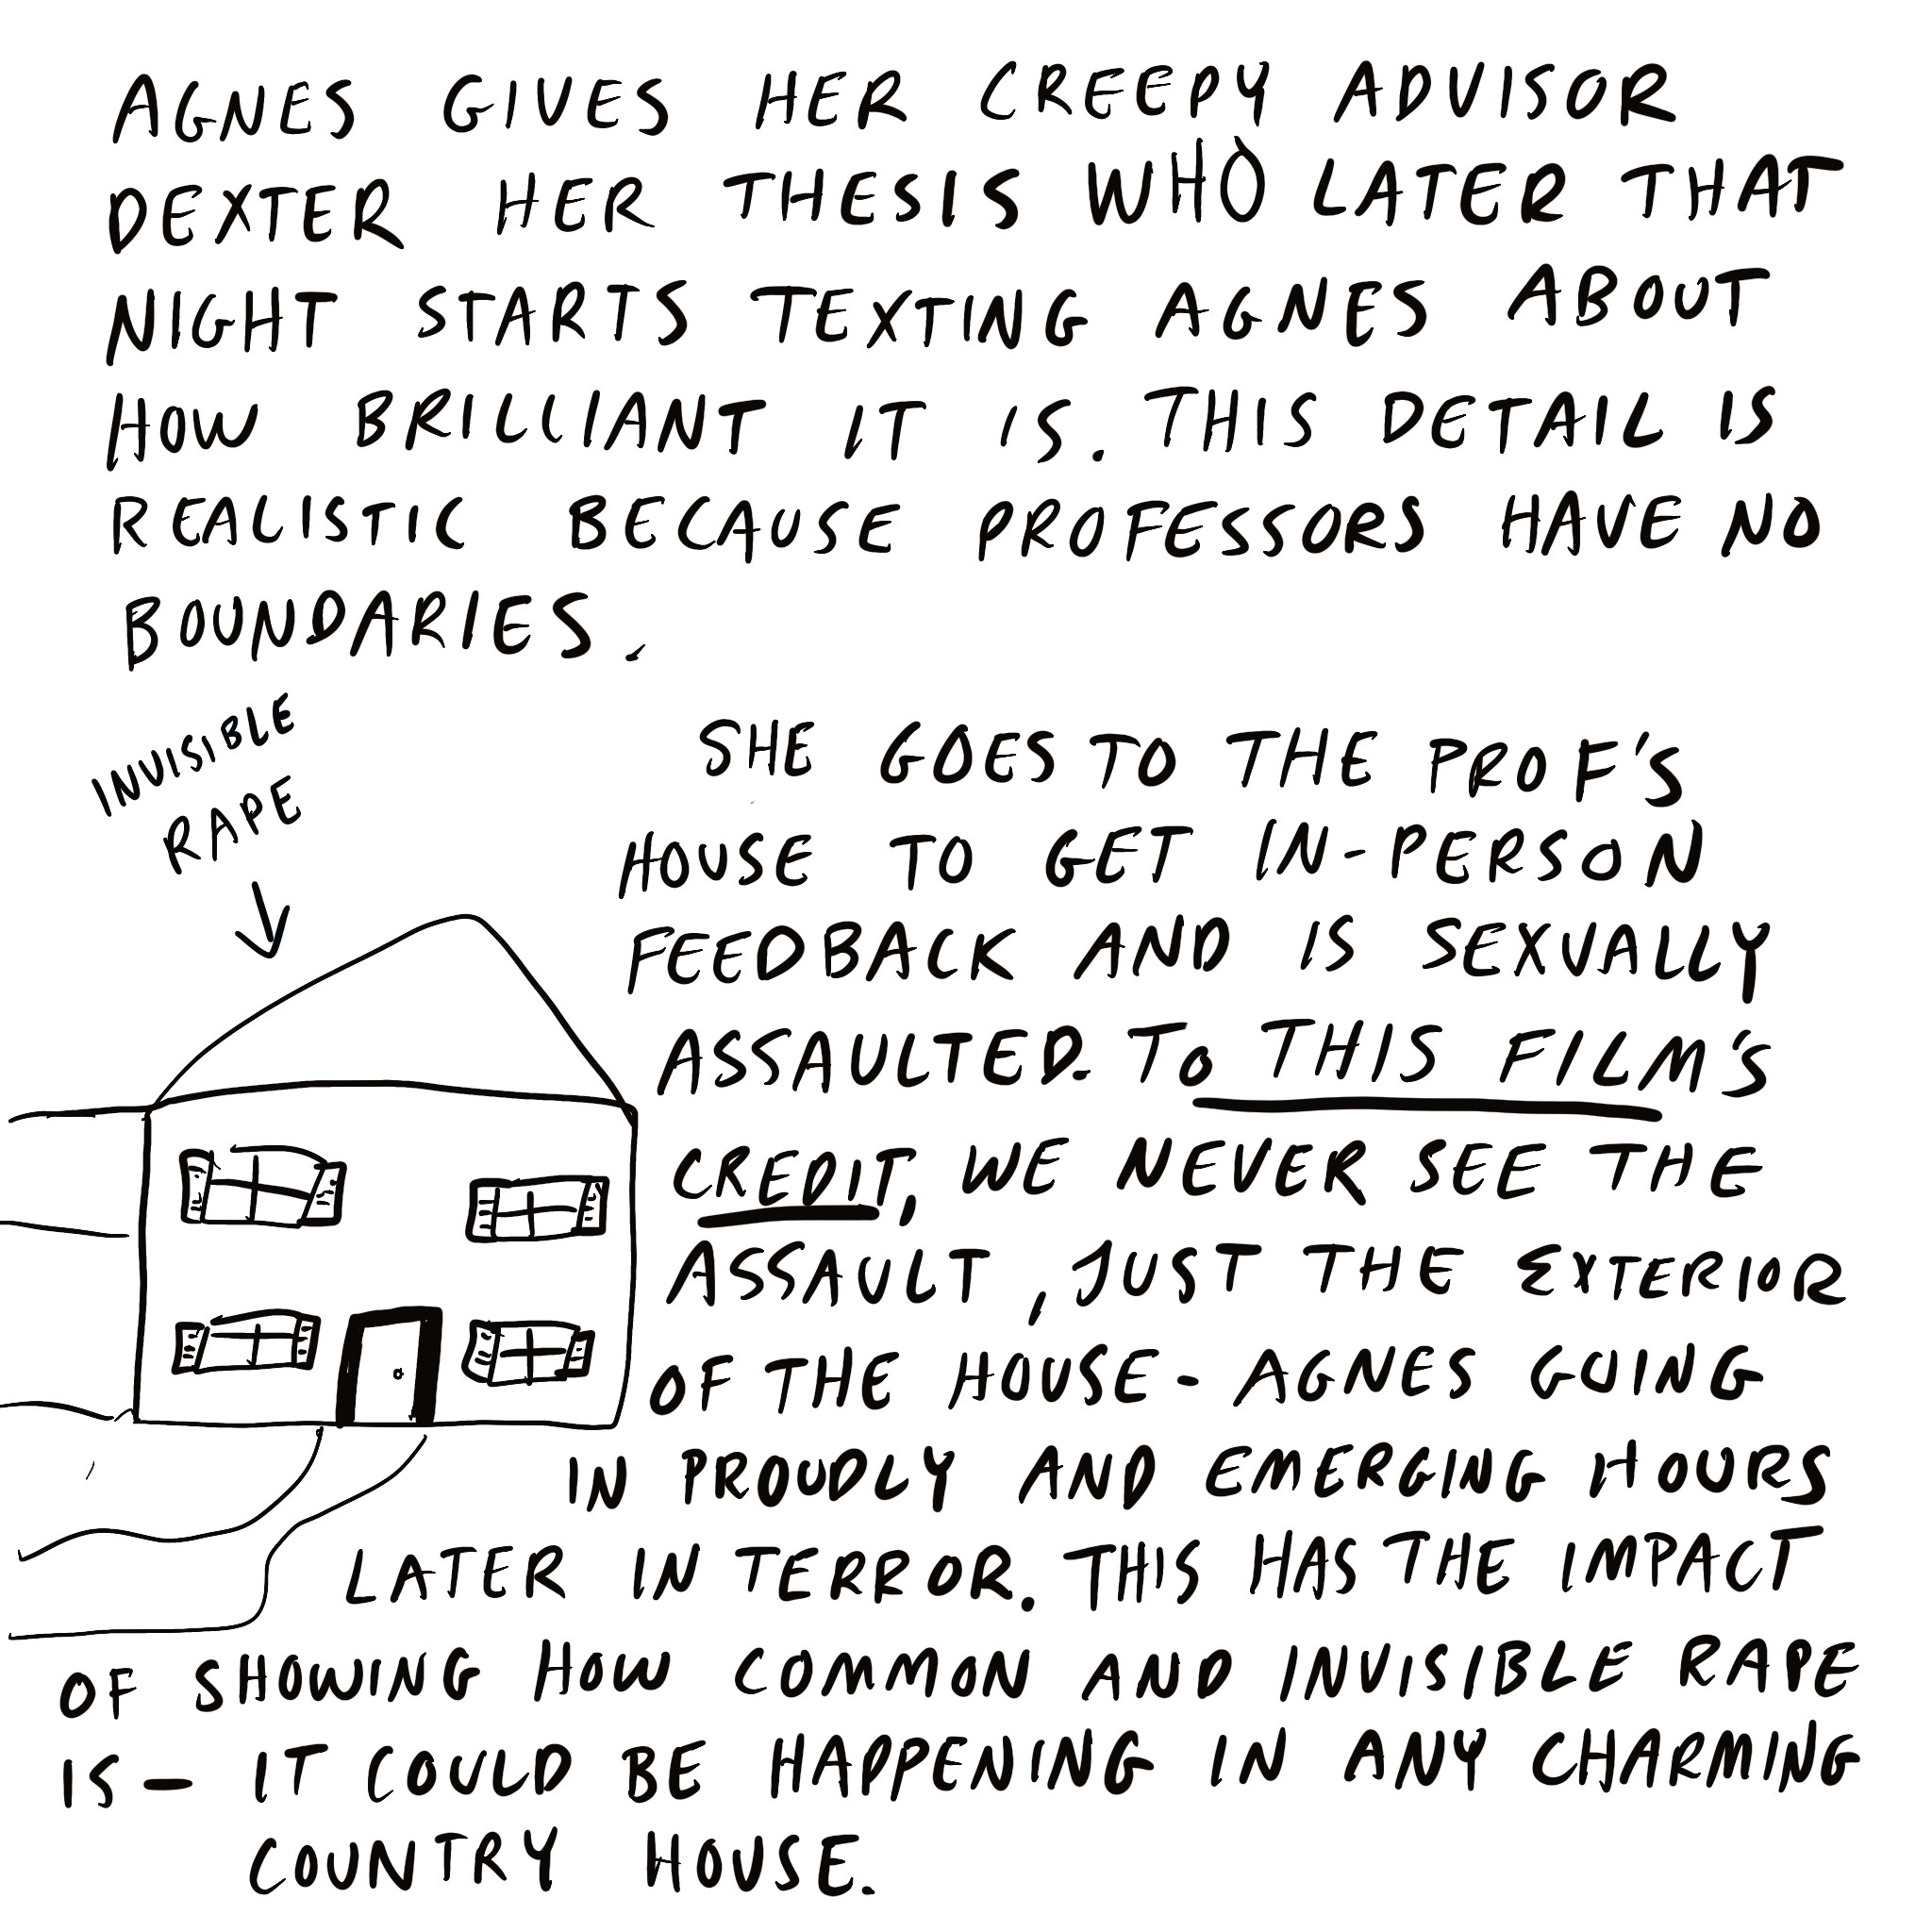 AGNES GIVES HER CREEPY ADVISOR
DEXTER HER THESIS WHO LATER THAT
NIGHT STARTS TEXTING AGNES ABOUT
HOW BRILLIANT IT IS. THIS DETAIL IS
REALISTIC BECAUSE PROFESSORS HAVE NO
BOUNDARIES.
INVISIBLE
RAPE
SHE GOES TO THE PROF'S
HOUSE TO GET IN-PERSON
FEEDBACK AND IS SEXUALLY
ASSAULTED. TO THIS FILM'S
CREDIT, WE NEVER SEE THE
ASSAULT, JUST THE EXTERIOR
OF THE HOUSE - AGNES GOING
IN PROUDLY AND EMERGING HOURS
LATER IN TERROR. THIS HAS THE IMPACT
OF SHOWING HOW COMMON AND INVISIBLE RAPE
IS — IT COULD BE HAPPENING IN ANY CHARMING
COUNTRY HOUSE.